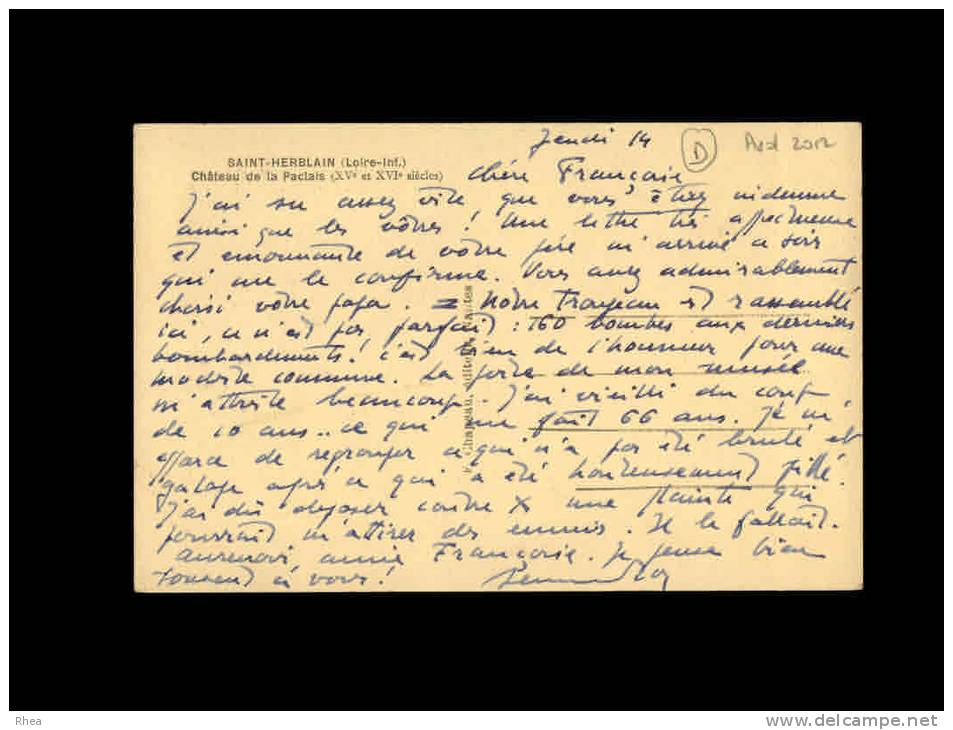 Jeudi 14
D
2012
SAINT-HERBLAIN (Loire-Inf.)
Château de la Paclais (XVe et XVIe siècles)
Chère Françoise
J'ai su assez vite, que vous étiez indemne
ainsi que les vôtres! Une lettre très affectueuse
et émouvante de votre père m'arrive ce soir
qui me le confirme. Vous avez admirablement
choisi votre papa. = Notre troupeau est rassemblé
ici, ce n'est pas parfait : 160 bombes aux derniers
bombardements! c'est bien de l'honneur pour une
modeste commune. La perte de mon musée
m'attriste beaucoup. J'ai vieilli du coup
de 10 ans.. ce qui me fait 66 ans. Je m'
efforce de regrouper ce qui n'a pas été brulé et
après ce qui a été honteusement pillé.
J'ai dû déposer contre X une plainte qui
pourrait m'attirer des ennuis. Il le fallait.
Aurevoir, amie Françoise. Je pense bien
souvent à vous!
Chapeau, éditeur, Nantes
Rhea
www.delcampe.net